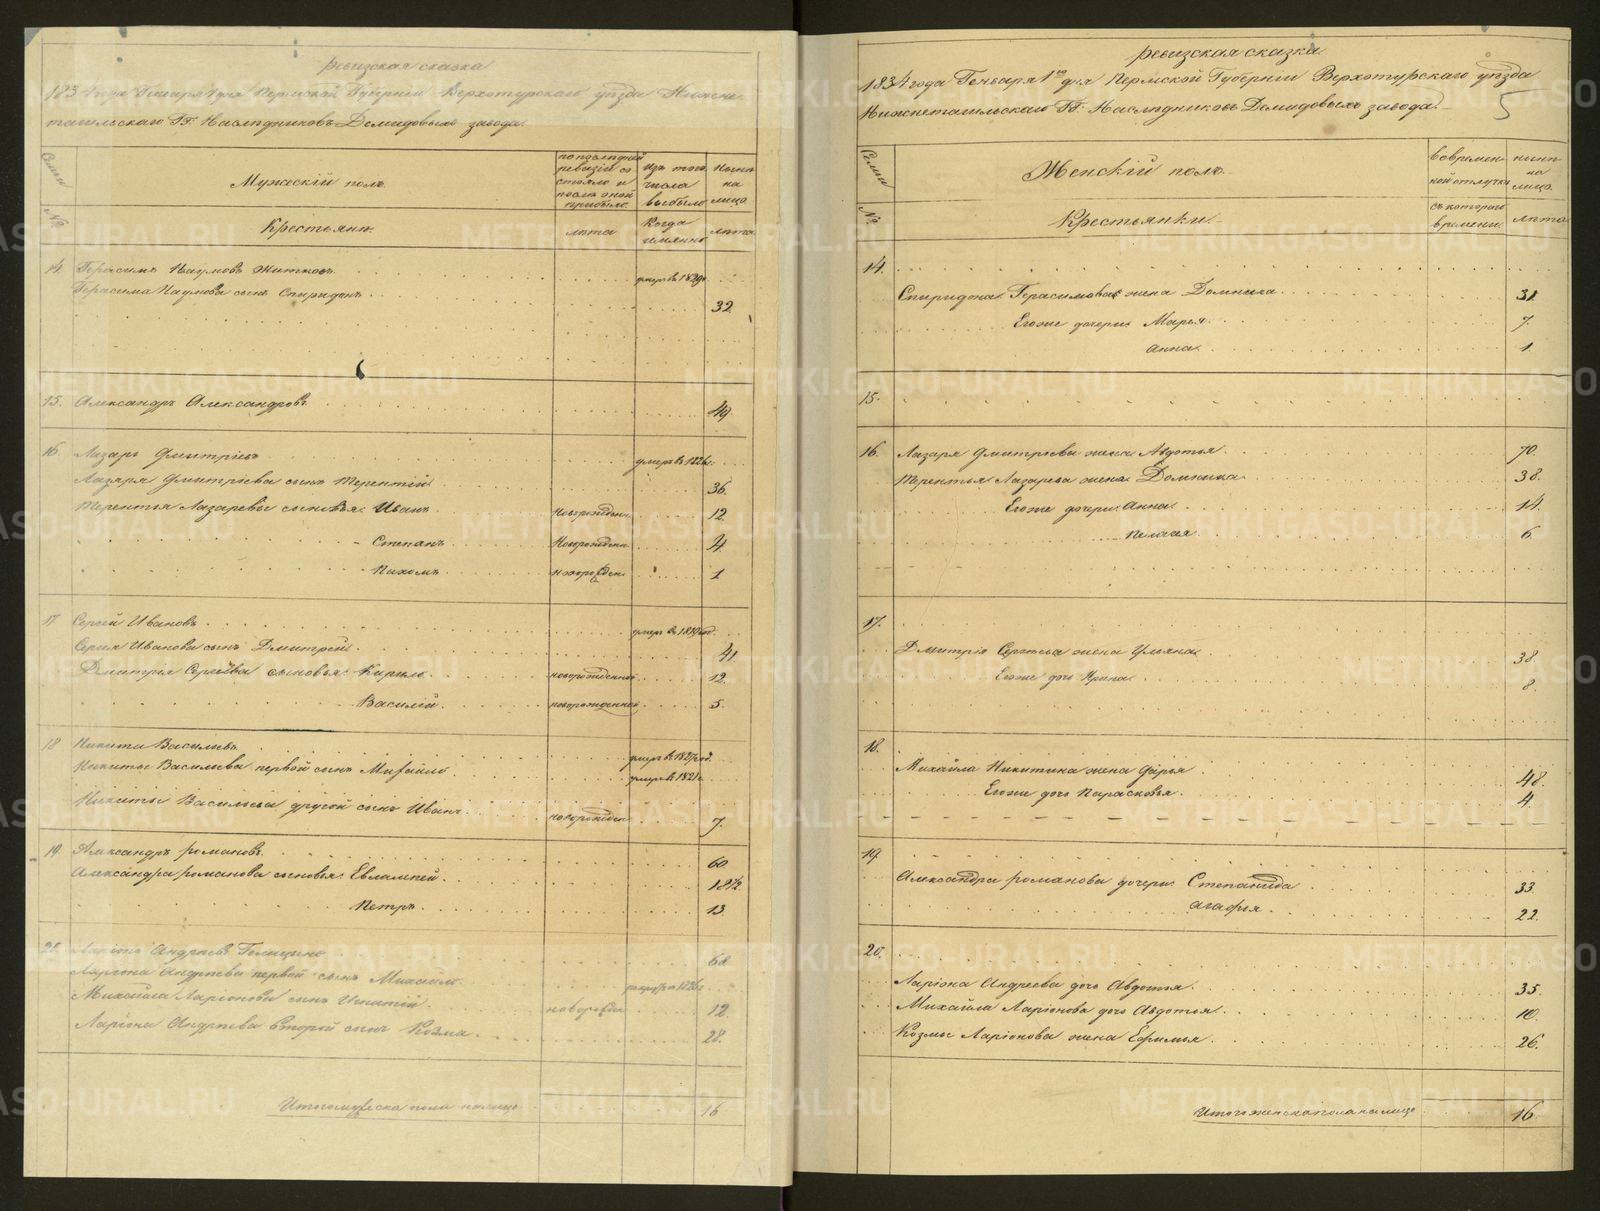 ревизская сказка
1834 года Генваря 1 дня Пермской Губернии Верхотурскаго уѣзда Нижне
тагильскаго ГГ. Наслѣдниковъ Демидовыхъ завода.
Семьи
Мужескій полъ.
по послѣдней ревизіи состояло и послѣ оной прибыло.
Изъ того числа выбыло
Нынѣ на лицо
№
Крестьяне.
лѣта
Когда именно
лѣта
14. Герасимъ Наумовъ Житковъ умеръ въ 1829
Герасима Наумова сынъ Спиридонъ 32.
15. Александръ Александровъ 49
16. Лазарь Дмитріевъ умеръ въ 1826
Лазаря Дмитріева сынъ Терентій 36.
Терентья Лазарева сыновья Иванъ новорожден. 12
Степанъ новорожден. 4
Пахомъ новорожден. 1
17 Сергѣй Ивановъ
Сергея Иванова сынъ Дмитрей 41.
Дмитрія Сергѣева сыновья Кирило новорожденной 12.
Василій новорожденной 5.
18 Никита Васильевъ
Никиты Васильева первой сынъ Михайло умеръ въ
Никиты Васильева другой сынъ Иванъ новорожден 7.
19. Александръ романовъ. 60
Александра романова сыновья Евлампей. 18½
Петръ. 13.
20. Ларіонъ Андреевъ 68
Ларіона Андреева первой сынъ Михайло
Михайла Ларіонова сынъ Игнатій новорожден 12.
Ларіона Андреева второй сынъ Козма 28.
Итого мужеска пола налицо 16
ревизская сказка
1834 года Генваря 1го дня Пермской Губерніи Верхотурскаго уѣзда
Нижнетагильскаго ГГ. Наслѣдниковъ Демидовыхъ завода.
5
Семьи
Женскій полъ.
во времен-ной отлучке
нынѣ на лицо
№
Крестьянки.
съ котораго времени.
лѣта
14.
Спиридона Герасимова жена Домника 31.
Егоже дочери Марья. 7.
Анна. 1.
15.
16. Лазаря Дмитріева жена Авдотья. 70.
Терентья Лазарева жена Домника 38.
Егоже дочери Анна. 14.
Пелагея 6.
17.
Дмитрія Сергѣева жена Ульяна. 38.
Егоже дочь Ирина. 8.
18.
Михайла Никитина жена Дарья. 48.
Егоже дочь Парасковья. 4.
19.
Александра романова дочери Степанида 33.
Агафья. 22.
20.
Ларіона Андреева дочь Авдотья. 35.
Михайла Ларіонова дочь Авдотья. 10.
Козмы Ларіонова жена Ефимья. 26.
Итого женска пола налицо 16.
METRIKI.GASO-URAL.RU